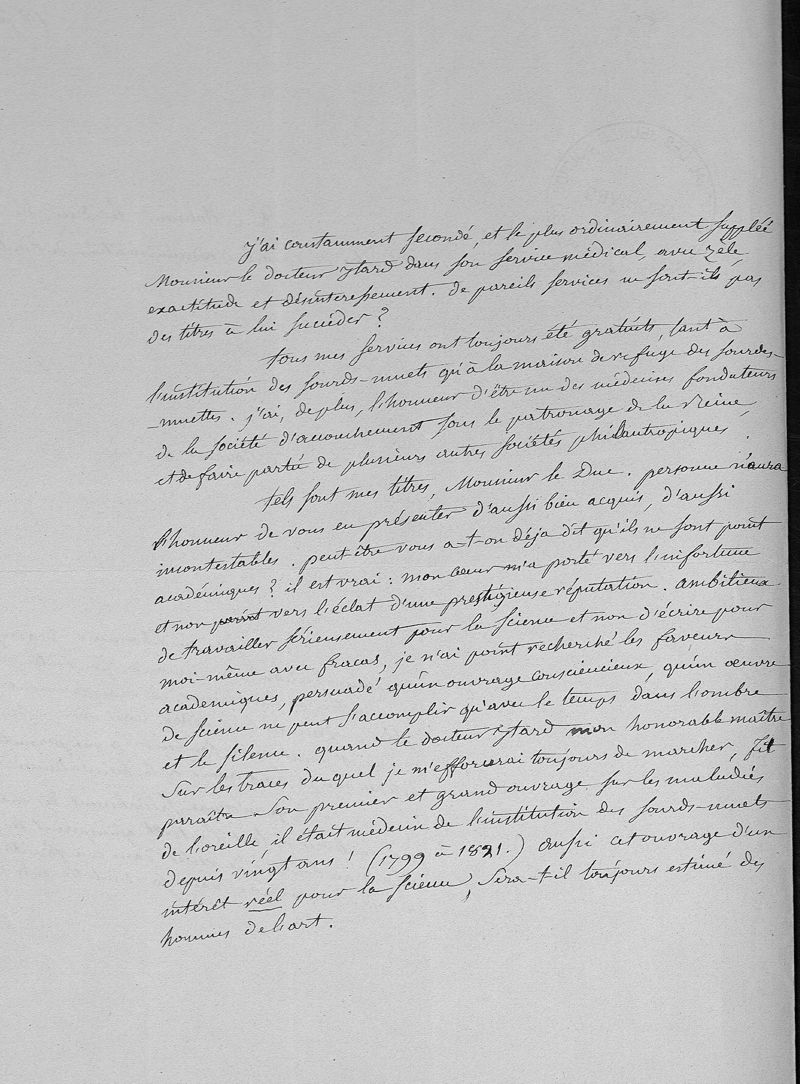 j'ai constamment secondé, et le plus ordinairement suppléé
Monsieur le docteur ytard dans son service médical, avec zèle
exactitude et désinteressement. de pareils services ne sont-ils pas
des titres à lui succéder ?
tous mes services ont toujours été gratuits, tant à
l'institution des sourds-muets qu'à la maison de refuge des sourdes-
-muettes. j'ai, de plus, l'honneur d'être un des médecins fondateurs
de la société d'accouchement sous le patronage de la Reine,
et de faire partie de plusieurs autres sociétés philantropiques.
tels sont mes titres, Monsieur le Duc. personne n'aura
l'honneur de vous en présenter d'aussi bien acquis, d'aussi
incontestables. peut-être vous a-t-on déja dit qu'ils ne sont point
académiques ? il est vrai : mon cœur m'a porté vers l'infortune
et non point vers l'éclat d'une prestigieuse réputation. ambitieux
de travailler sérieusement pour la science et non d'écrire pour
moi-même avec fracas, je n'ai point recherché les faveurs
academiques, persuadé qu'un ouvrage consciencieux, qu'un œuvre
de science ne peut s'accomplir qu'avec le temps dans l'ombre
et le silence. quand le docteur ytard mon honorable maître
sur les traces duquel je m'efforcerai toujours de marcher, fit
paraître son premier et grand ouvrage sur les maladies
de l'oreille, il était médecin de l'institution des sourds-muets
depuis vingt ans ! (1799 à 1821.) aussi cet ouvrage d'un
intérêt réel pour la science, sera-t-il toujours estimé des
hommes de l'art.